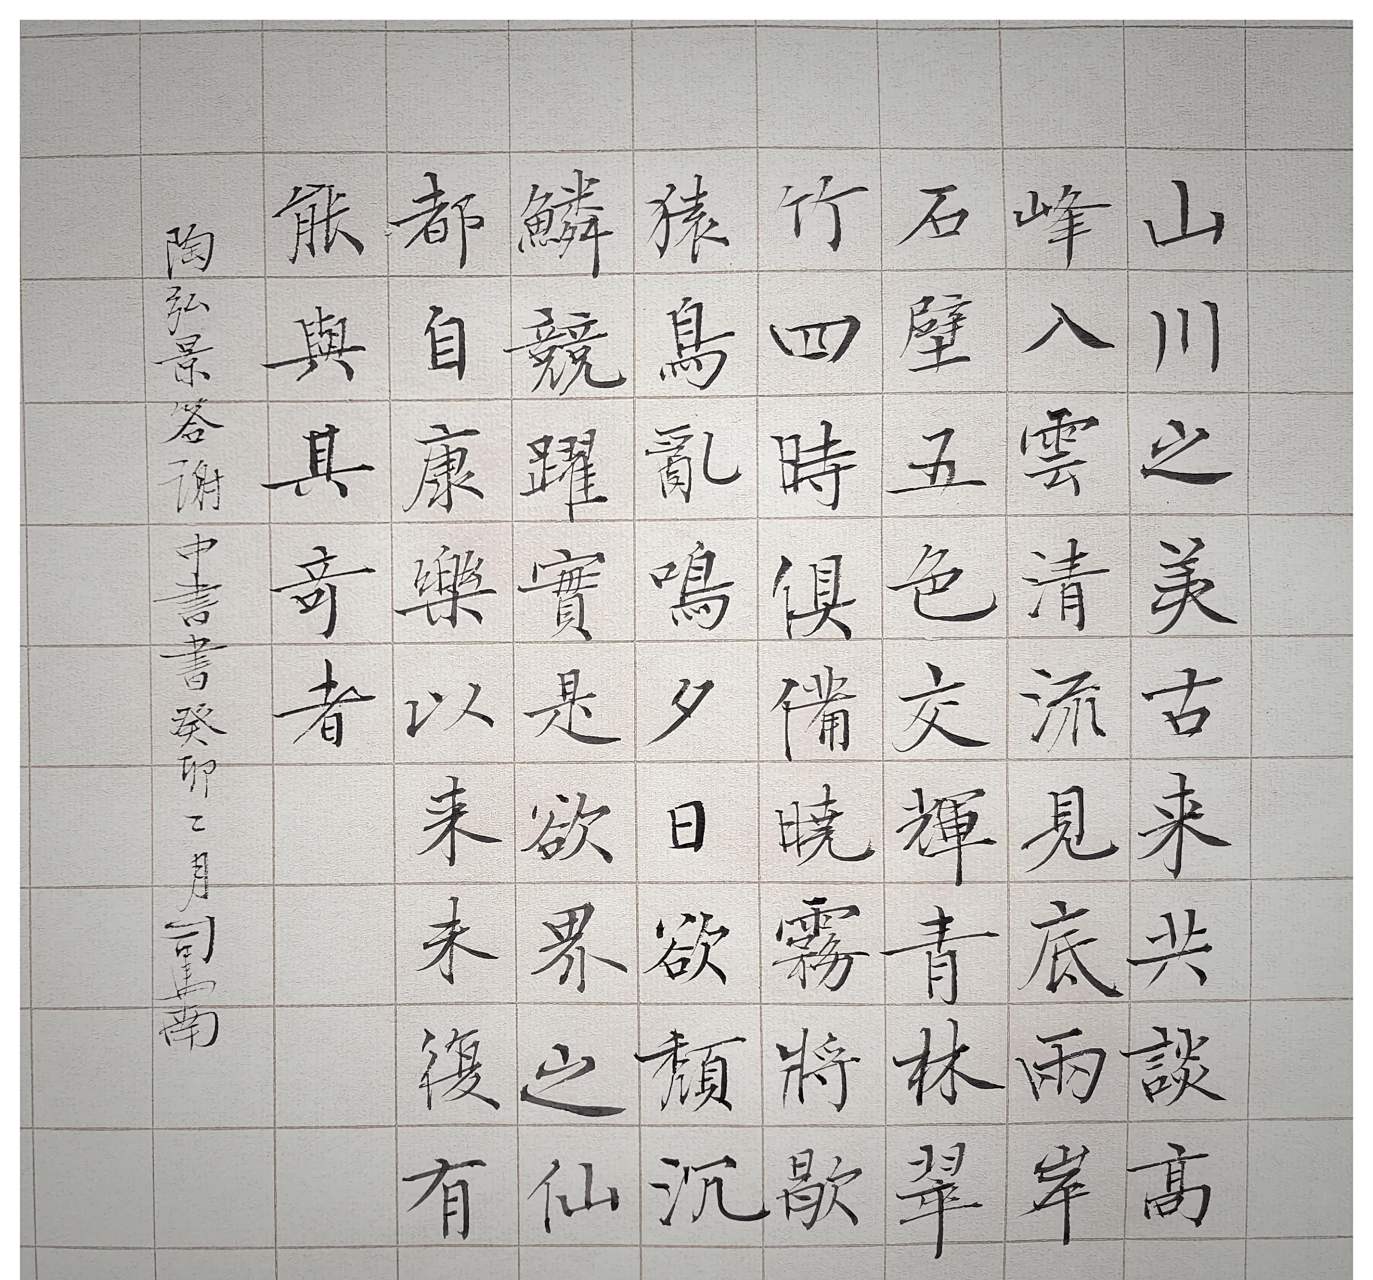 山川之美古来共談高
峰入雲清流見底兩岸
石壁五色交輝青林翠
竹四時俱備曉霧將歇
猿鳥亂鳴夕日欲頹沉
鱗競躍實是欲界之仙
都自康樂以来未復有
能與其奇者
陶弘景答謝中書書癸卯二月司馬南